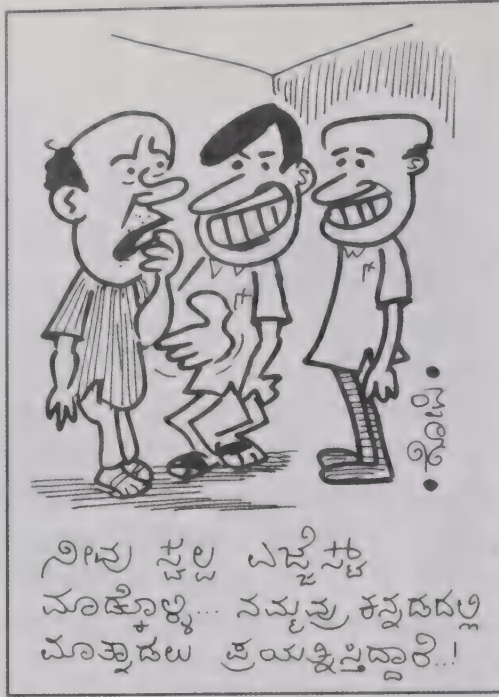 ನೀವು ಸ್ವಲ್ಪ ಎಡ್ಜೆಸ್ಟ್
ಮಾಡ್ಕೊಳ್ಳಿ... ನಮ್ಮವ್ರು ಕನ್ನಡದಲ್ಲಿ
ಮಾತ್ನಾಡಲು ಪ್ರಯತ್ನಿಸ್ತಿದ್ದಾರೆ..!